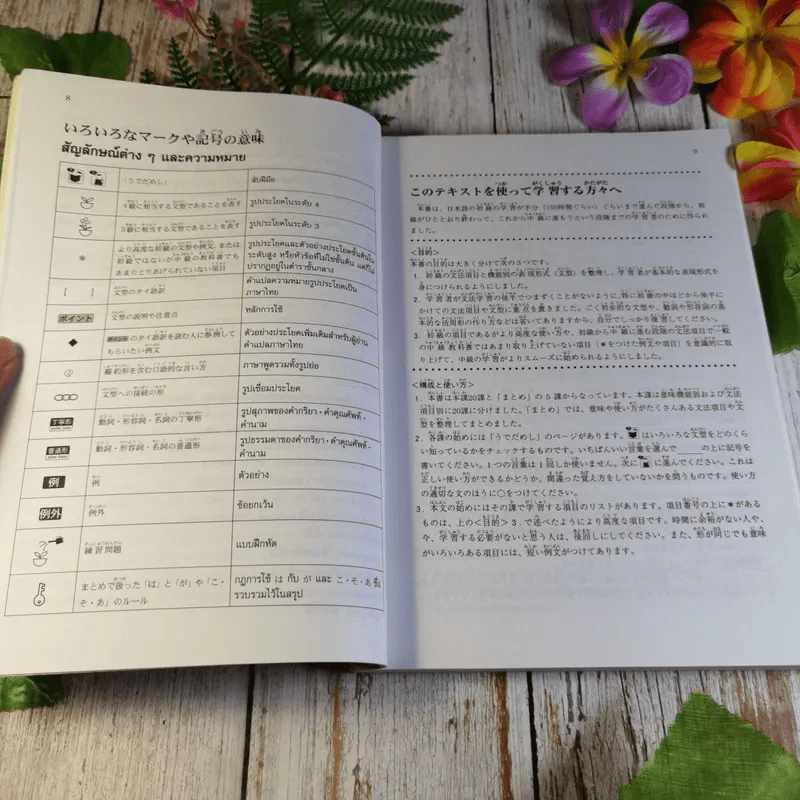 8
いろいろなマークや記号の意味
สัญลักษณ์ต่าง ๆ และความหมาย
「うでだめし」 ลับฝีมือ
4級に相当する文型であることを表す รูปประโยคในระดับ 4
3級に相当する文型であることを表す รูปประโยคในระดับ 3
* より高度な初級の文型や例文、または
初級ではないが中級の教科書でも
あまりとりあげられていない項目
รูปประโยคและตัวอย่างประโยคชั้นต้นใน
ระดับสูง หรือหัวข้อที่ไม่ใช่ชั้นต้น แต่ก็ไม่
ปรากฏอยู่ในตำราชั้นกลาง
[ ] 文型のタイ語訳 คำแปลความหมายรูปประโยคเป็น
ภาษาไทย
ポイント 文型の説明や注意点 หลักการใช้
◆ ポイントのタイ語訳を読む人に参照して
もらいたい例文
ตัวอย่างประโยคเพิ่มเติมสำหรับผู้อ่าน
คำแปลภาษาไทย
縮約形を含む口語的な言い方 ภาษาพูดรวมทั้งรูปย่อ
文型への接続の形 รูปเชื่อมประโยค
丁寧形 動詞・形容詞・名詞の丁寧形 รูปสุภาพของคำกริยา・คำคุณศัพท์・
คำนาม
普通形 動詞・形容詞・名詞の普通形 รูปธรรมดาของคำกริยา・คำคุณศัพท์・
คำนาม
例 例 ตัวอย่าง
例外 例外 ข้อยกเว้น
練習問題 แบบฝึกหัด
まとめで扱った「は」と「が」や「こ・
そ・あ」のルール
กฎการใช้ は กับ が และ こ・そ・あ ซึ่ง
รวบรวมไว้ในสรุป
9
このテキストを使って学習する方々へ
本書は、日本語の初級の学習が半分(150時間ぐらい)ぐらいまで進んだ段階から、初
級がひととおり終わって、これから中級に進もうという段階までの学習者のために作られ
ました。
<目的>
本書の目的は大きく分けて次の3つです。
1. 初級の文法項目と機能別の表現形式(文型)を整理し、学習者が基本的な表現形式を
身につけられるようにしました。
2. 学習者が文法学習の後半でつまずくことがないように、特に初級の中ほどから後半に
かけての文法項目や文型に重点を置きました。ごく初歩的な文型や、動詞や形容詞の基
本的な活用形の作り方などは省いてありますから、自分でしっかり復習してください。
3. 初級の項目であるがより高度な使い方や、初級から中級に進む段階の文法項目で一般
の中級教科書ではあまり取り上げていない項目(*をつけた例文や項目)を意識的に取
り上げて、中級の学習がよりスムーズに始められるようにしました。
<構成と使い方>
1. 本書は本課20課と「まとめ」の5課からなっています。本課は意味機能別および文法
項目別に20課に分けました。「まとめ」では、意味や使い方がたくさんある文法項目や文
型を整理してまとめました。
2. 各課の始めには「うでだめし」のページがあります。はいろいろな文型をどのくら
い知っているかをチェックするものです。いちばんいい言葉を選んで____の上に記号を
書いてください。1つの言葉は1回しか使いません。次にに進んでください。これは
正しい使い方ができるかどうか、間違った覚え方をしていないかを問うものです。使い方
の適切な文のほうに○をつけてください。
3. 本文の始めにはその課で学習する項目のリストがあります。項目番号の上に*がある
ものは、上の<目的>3.で述べたようにより高度な項目です。時間に余裕がない人や、
今、学習する必要がないと思う人は、後回しにしてください。また、形が同じでも意味
がいろいろある項目には、短い例文がつけてあります。